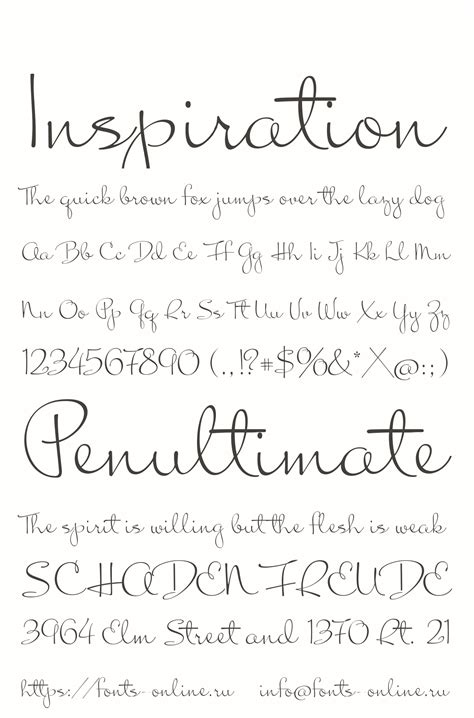 Inspiration
The quick brown fox jumps over the lazy dog
Aa Bb Cc Dd Ee Ff Gg Hh Ii Jj Kk Ll Mm
Nn Oo Pp Qq Rr Ss Tt Uu Vv Ww Xx Yy Zz
1234567890 (.,!?#$%&*X@:;)
Penultimate
The spirit is willing but the flesh is weak
SCHADENFREUDE
3964 Elm Street and 1370 Rt. 21
https://fonts-online.ru info@fonts-online.ru